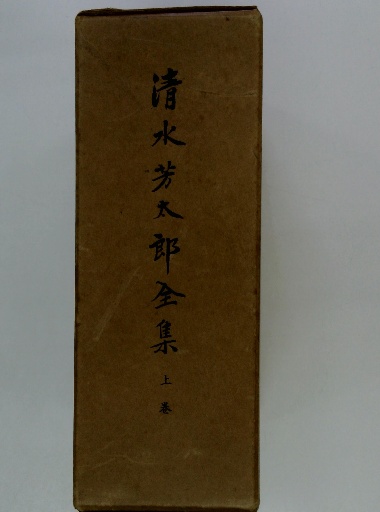 清水芳太郎全集 上巻